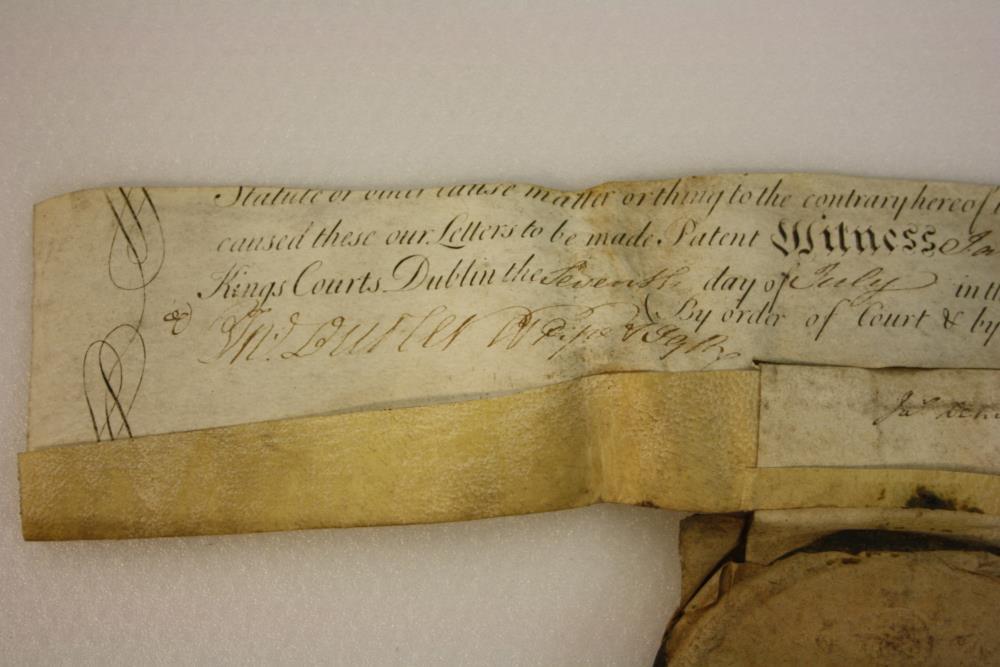 Statute or other cause matter or thing to the contrary hereof
caused these our Letters to be made Patent Witness
Kings Courts Dublin the Seventh day of July in
& Jno. Butler
By order of Court & by